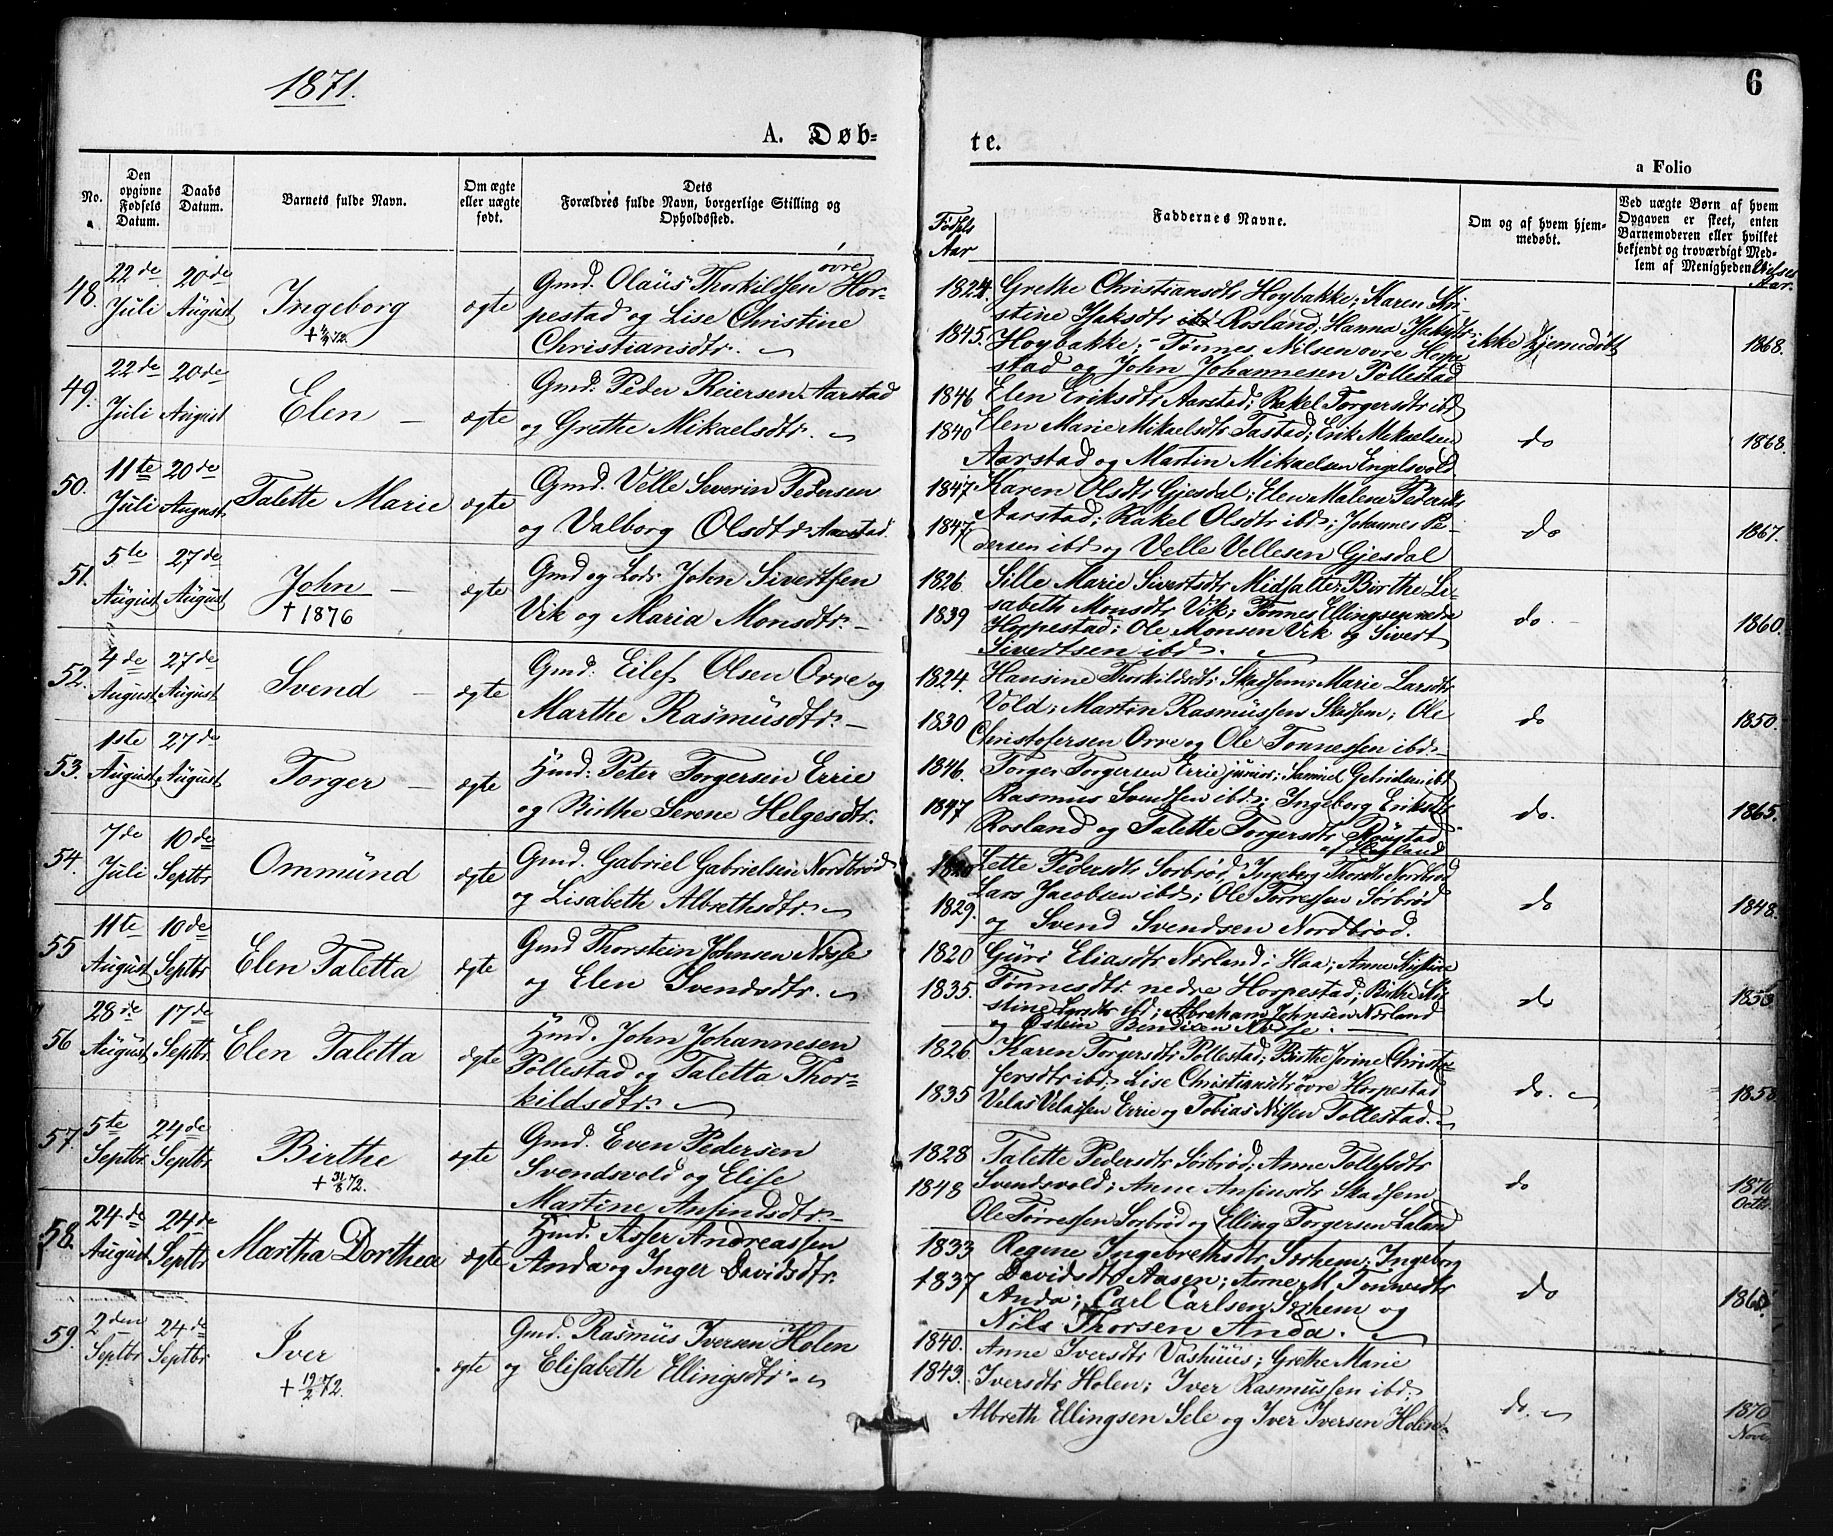 1871.
6
A. Døb-
te.
a Folio
No.
a.
Den opgivne Fødsels Datum.
Daabs Datum.
Barnets fulde Navn.
Om ægte eller uægte født.
Dets Forældres fulde Navn, borgerlige Stilling og Opholdssted.
Fødsels Aar
Faddernes Navne.
Om og af hvem hjemmedøbt.
Ved uægte Børn af hvem Opgaven er skeet, enten Barnemoderen eller hvilket bekjendt og troværdigt Medlem af Menigheden.
Vielses Aar.
48.
22de Juli
20de August
Ingeborg
ægte
Gmd. Olaus Thorkildsen øvre Hor-
pestad og Lise Christine
Christiansdtr.
1824
1845.
Grethe Christiansdtr Hoybakke; Karen Kri-
stine Isaksdtr Rosland; Hanna Isaksdtr
Hoybakke; Tønnes Nilsen øvre Horpe
stad og John Johannesen Pollestad
ikke hjemmedøbt
1868.
49.
22de Juli
20de August
Elen
ægte
Gmd: Peder Reiersen Aarstad
og Grethe Mikaelsdtr.
1846
1840
Elen Eriksdtr Aarstad; Rakel Torgersdtr ibd
Elen Marie Mikaelsdtr Tastad; Erik Mikaelsen
Aarstad og Martin Mikaelsen Engelsvold
do
1868.
50.
11te Juli
20de August
Talette Marie
ægte
Gmd. Velle Severin Pedersen
og Valborg Olsdtr Aarstad.
1847
1847
Karen Olsdtr Gjesdal; Elen Malene Pedersdtr
Aarstad; Rakel Olsdtr ibd; Johannes Pe-
dersen ibd og Velle Vellesen Gjesdal
do
1867.
51.
5te August
27de August
John
† 1876
ægte
Gmd og Lods John Sivertsen
Vik og Maria Monsdtr.
1826
1839
Sille Marie Sivertsdtr Midfalte; Birthe Li-
sabeth Monsdtr Vik; Tønnes Ellingsen nedre
Horpestad; Ole Monsen Vik og Sivert
Sivertsen ibd.
do
1860.
52.
4de August
27de August
Svend
ægte
Gmd: Eilef Olsen Orre og
Marthe Rasmusdtr.
1824.
1830
Hansine Thorkildsdtr Skadsem; Marie Larsdtr
Vold; Martin Rasmussen Skadsem; Ole
Christofersen Orre og Ole Tønnessen ibd.
do
1850.
53.
1ste August
27de August
Torger
ægte
Hmd: Peter Torgersen Errie
og Birthe Serene Helgesdtr.
1846.
1847
Torger Torgersen Errie junior; Samuel Gabrielsen ibd
Rasmus Svendsen ibd; Ingeborg Eriksdtr
Rosland og Talette Torgersdtr Røugstad
af Høyland
do.
1865.
54.
7de Juli
10de Septbr
Ommund
ægte
Gmd. Gabriel Gabrielsen Nordbrød
og Lisabeth Albrethsdtr.
1829.
Lette Pedersdtr Sorbrød, Ingeborg Thordtr Nordbrød
Lars Jacobsen ibd; Ole Torressen Sørbrød
og Svend Svendsen Nordbrød.
do
1848.
55
11te August
10de Septbr
Elen Taletta
ægte
Gmd Thorstein Johnsen Næse
og Elen Svendsdtr.
1820
1835.
Guri Eliasdtr Nærland i Haa; Anne Kistine
Tønnesdtr nedre Horpestad; Birthe Kri-
stine Larsdtr ibd; Abraham Johnsen Nærland
og Østein Bendixen Næse.
do
1853
56
28de August
17de Septbr
Elen Taletta
ægte
Hmd. John Johannesen
Pollestad og Taletta Thor-
kildsdtr.
1826
1835
Karen Torgersdtr Pollestad; Birthe Jorine Christo-
fersdtr ibd; Lise Christiansdtr øvre Horpestad
Velas Velassen Errie og Tobias Nilsen Tollestad.
do.
1858
57.
5te Septbr
24de Septbr
Birthe
† 31/8 72.
ægte
Gmd. Even Pedersen
Svendsvold og Elise
Martine Anfindsdtr.
1828
1848
Talette Pedersdtr Sorbrød; Anne Tollefsdtr
Svendsvold; Anne Anfinsdtr Skadsem
Ole Tørressen Sorbrød og Elling Torgersen Laland
do
1870
Octbr
58.
24de August
24de Septbr
Martha Dorthea
ægte
Hmd. Asser Andreassen
Anda og Inger Davidsdtr.
1833
1837
Regine Ingebrethsdtr Sørhem; Ingeborg
Davidsdtr Aasen; Anne M. Tonwedtr
Anda; Carl Carlsen Sørhem og
Nils Thorsen Anda.
do
59.
2den Septbr
24de Septbr
Iver
† 19/2 72.
ægte
Gmd. Rasmus Iversen Holen
og Elisabeth Ellingsdtr.
1840.
1843.
Anne Iversdtr Vashuus; Grethe Marie
Iversdtr Holen; Iver Rasmussen ibd.
Albreth Ellingsen Sele og Iver Iversen Holen.
do.
1870
Novb